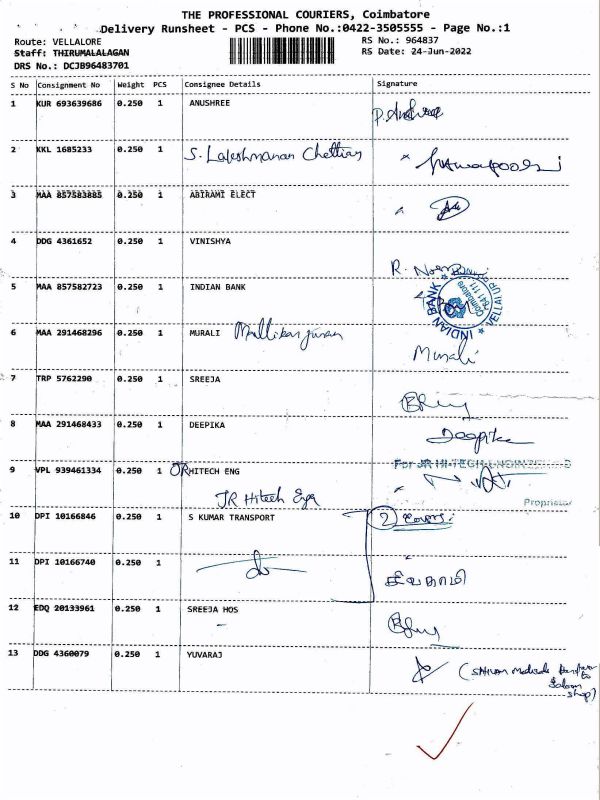 THE PROFESSIONAL COURIERS, Coimbatore
Delivery Runsheet - PCS - Phone No.:0422-3505555 - Page No.:1
Route: VELLALORE RS No.: 964837
Staff: THIRUMALALAGAN RS Date: 24-Jun-2022
DRS No.: DCJB96483701
S No Consignment No Weight PCS Consignee Details Signature
1 KUR 693639686 0.250 1 ANUSHREE
2 KKL 1685233 0.250 1 S. Lakshmanan Chettiar
3 MAA 857583885 0.250 1 ABIRAMI ELECT
4 DDG 4361652 0.250 1 VINISHYA
5 MAA 857582723 0.250 1 INDIAN BANK
INDIAN BANK ★ VELLALUR ★ Coimbatore 641 111
6 MAA 291468296 0.250 1 MURALI Mallikarjunan Murali
7 TRP 5762290 0.250 1 SREEJA
8 MAA 291468433 0.250 1 DEEPIKA Deepika
9 VPL 939461334 0.250 1 JRHITECH ENG For JR HI-TECH ENGINEERING
JR Hitech Eng Proprietor
10 DPI 10166846 0.250 1 S KUMAR TRANSPORT 2 covers
11 DPI 10166740 0.250 1
12 EDQ 20133961 0.250 1 SREEJA HOS
13 DDG 4360079 0.250 1 YUVARAJ
shop)